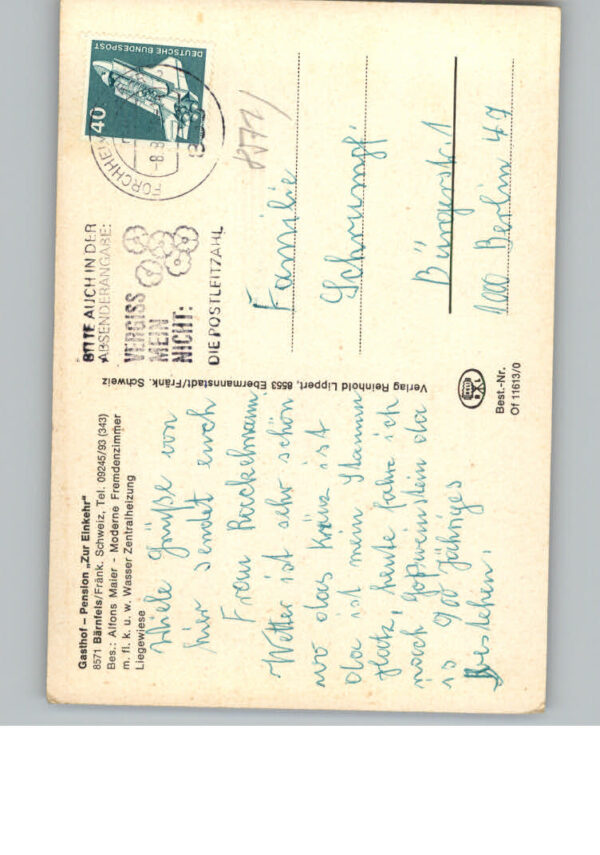 Gasthof – Pension „Zur Einkehr"
8571 Bärnfels/Fränk. Schweiz, Tel. 09245/93 (343)
Bes.: Alfons Maier - Moderne Fremdenzimmer
m. fl. k. u. w. Wasser Zentralheizung
Liegewiese
Viele Grüße von
hier sendet euch
Frau Rackelmann.
Wetter ist sehr schön
wo das Kreuz ist
da ist mein Stamm
platz, heute fahre ich
nach Gößweinstein da
is 900 Jähriges
bestehen.
Verlag Reinhold Lippert, 8553 Ebermannstadt/Fränk. Schweiz
BITTE AUCH IN DER
ABSENDERANGABE:
VERGISS
MEIN
NICHT:
DIE POSTLEITZAHL
FORCHHEIM
-8.
DEUTSCHE BUNDESPOST
40
8571/
Familie
Schrumpf
Bürgerstr. 1
1000 Berlin 47
Best.-Nr.
Of 11613/0